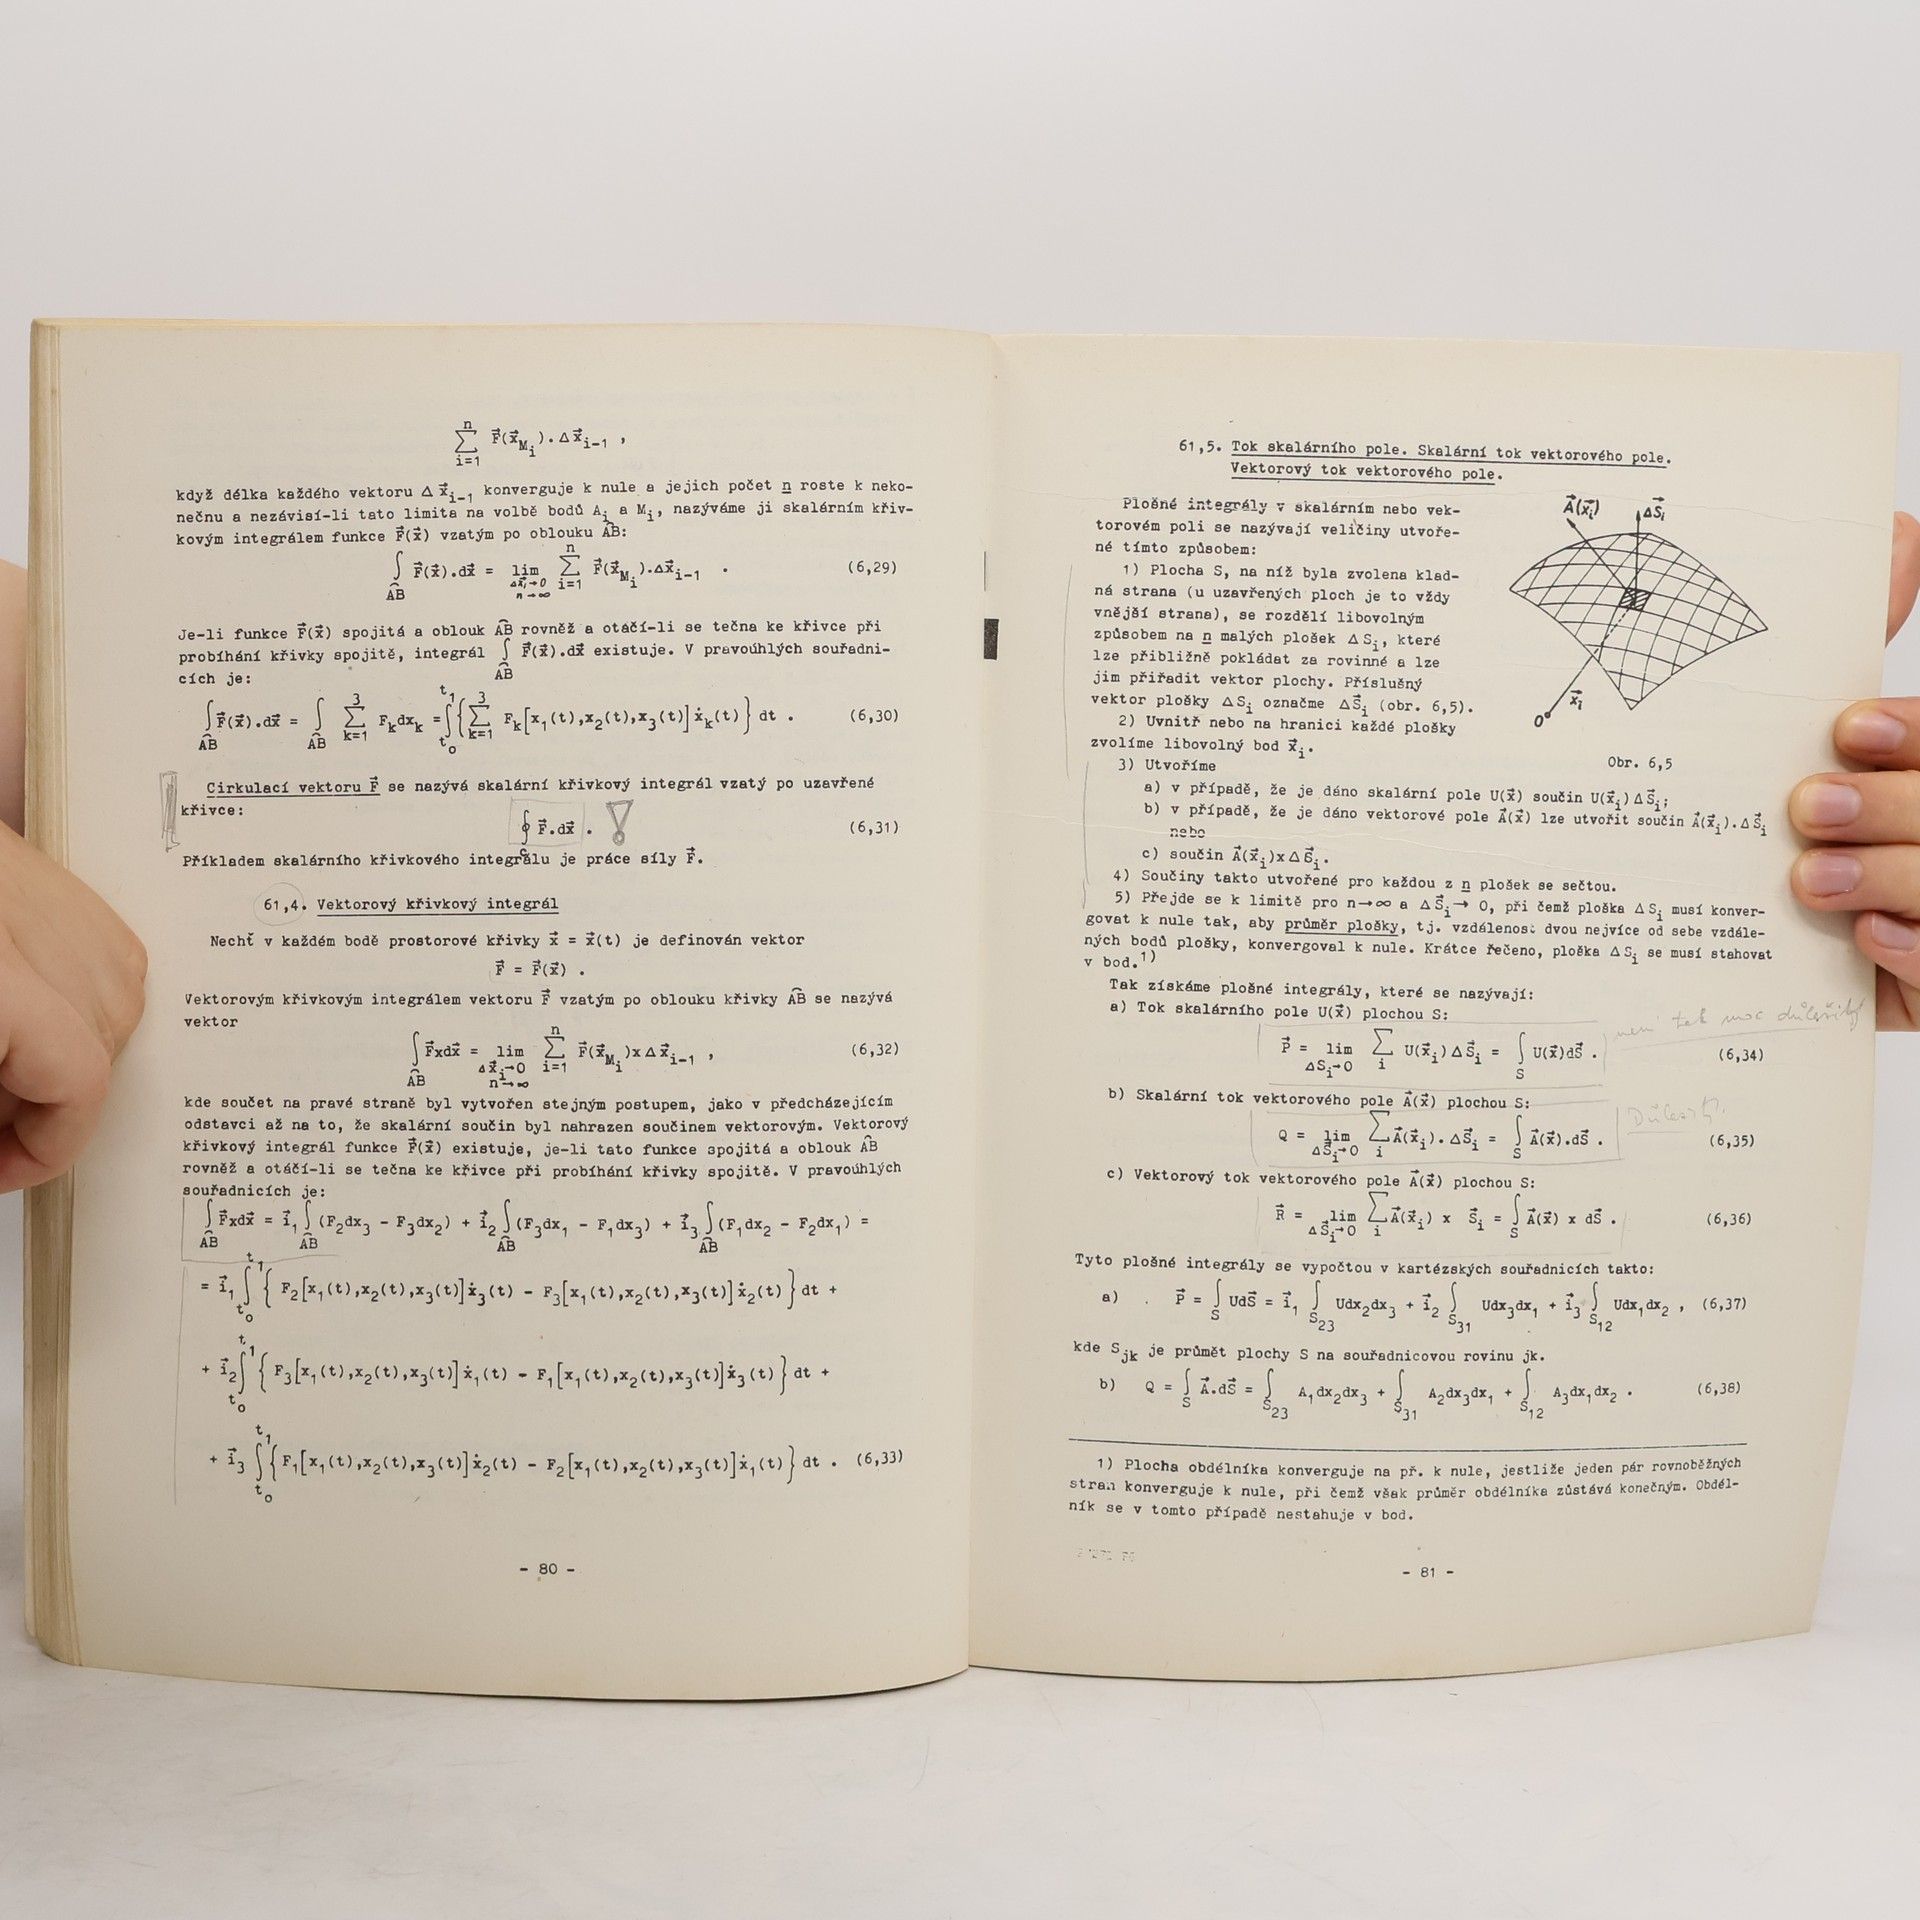 n
∑ F⃗(x⃗_{M_i}).Δx⃗_{i-1} ,
i=1
když délka každého vektoru Δ x⃗_{i-1} konverguje k nule a jejich počet n roste k neko-
nečnu a nezávisí-li tato limita na volbě bodů A_i a M_i, nazýváme ji skalárním křiv-
kovým integrálem funkce F⃗(x⃗) vzatým po oblouku A͡B:
∫_{A͡B} F⃗(x⃗).dx⃗ = lim_{Δx⃗_i→0, n→∞} ∑_{i=1}^{n} F⃗(x⃗_{M_i}).Δx⃗_{i-1} . (6,29)
Je-li funkce F⃗(x⃗) spojitá a oblouk A͡B rovněž a otáčí-li se tečna ke křivce při
probíhání křivky spojitě, integrál ∫_{A͡B} F⃗(x⃗).dx⃗ existuje. V pravoúhlých souřadni-
cích je:
∫_{A͡B} F⃗(x⃗).dx⃗ = ∫_{A͡B} ∑_{k=1}^{3} F_k dx_k = ∫_{t_0}^{t_1} {∑_{k=1}^{3} F_k[x_1(t),x_2(t),x_3(t)] ẋ_k(t)} dt . (6,30)
Cirkulací vektoru F⃗ se nazývá skalární křivkový integrál vzatý po uzavřené
křivce:
∮_c F⃗.dx⃗ . ! (6,31)
Příkladem skalárního křivkového integrálu je práce síly F⃗.
61,4. Vektorový křivkový integrál
Nechť v každém bodě prostorové křivky x⃗ = x⃗(t) je definován vektor
F⃗ = F⃗(x⃗) .
Vektorovým křivkovým integrálem vektoru F⃗ vzatým po oblouku křivky A͡B se nazývá
vektor
∫_{A͡B} F⃗xdx⃗ = lim_{Δx⃗_i→0, n→∞} ∑_{i=1}^{n} F⃗(x⃗_{M_i})xΔx⃗_{i-1} , (6,32)
kde součet na pravé straně byl vytvořen stejným postupem, jako v předcházejícím
odstavci až na to, že skalární součin byl nahrazen součinem vektorovým. Vektorový
křivkový integrál funkce F⃗(x⃗) existuje, je-li tato funkce spojitá a oblouk A͡B
rovněž a otáčí-li se tečna ke křivce při probíhání křivky spojitě. V pravoúhlých
souřadnicích je:
∫_{A͡B} F⃗xdx⃗ = i⃗_1 ∫_{A͡B} (F_2dx_3 - F_3dx_2) + i⃗_2 ∫_{A͡B} (F_3dx_1 - F_1dx_3) + i⃗_3 ∫_{A͡B} (F_1dx_2 - F_2dx_1) =
= i⃗_1 ∫_{t_0}^{t_1} { F_2[x_1(t),x_2(t),x_3(t)] ẋ_3(t) - F_3[x_1(t),x_2(t),x_3(t)] ẋ_2(t) } dt +
+ i⃗_2 ∫_{t_0}^{t_1} { F_3[x_1(t),x_2(t),x_3(t)] ẋ_1(t) - F_1[x_1(t),x_2(t),x_3(t)] ẋ_3(t) } dt +
+ i⃗_3 ∫_{t_0}^{t_1} { F_1[x_1(t),x_2(t),x_3(t)] ẋ_2(t) - F_2[x_1(t),x_2(t),x_3(t)] ẋ_1(t) } dt . (6,33)
- 80 -
61,5. Tok skalárního pole. Skalární tok vektorového pole.
Vektorový tok vektorového pole.
Plošné integrály v skalárním nebo vek-
torovém poli se nazývají veličiny utvoře-
né tímto způsobem:
1) Plocha S, na níž byla zvolena klad-
ná strana (u uzavřených ploch je to vždy
vnější strana), se rozdělí libovolným
způsobem na n malých plošek Δ S_i, které
lze přibližně pokládat za rovinné a lze
jim přiřadit vektor plochy. Příslušný
vektor plošky ΔS_i označme ΔS⃗_i (obr. 6,5).
2) Uvnitř nebo na hranici každé plošky
zvolíme libovolný bod x⃗_i.
A⃗(x⃗_i) ΔS⃗_i
x⃗_i
O
Obr. 6,5
3) Utvoříme
a) v případě, že je dáno skalární pole U(x⃗) součin U(x⃗_i)ΔS⃗_i;
b) v případě, že je dáno vektorové pole A⃗(x⃗) lze utvořit součin A⃗(x⃗_i).ΔS⃗_i
nebo
c) součin A⃗(x⃗_i)xΔS⃗_i.
4) Součiny takto utvořené pro každou z n plošek se sečtou.
5) Přejde se k limitě pro n→∞ a ΔS⃗_i→ 0, při čemž ploška ΔS_i musí konver-
govat k nule tak, aby průměr plošky, tj. vzdálenost dvou nejvíce od sebe vzdále-
ných bodů plošky, konvergoval k nule. Krátce řečeno, ploška ΔS_i se musí stahovat
v bod.1)
Tak získáme plošné integrály, které se nazývají:
a) Tok skalárního pole U(x⃗) plochou S:
není tak moc důležitý
P⃗ = lim_{ΔS_i→0} ∑_i U(x⃗_i)ΔS⃗_i = ∫_S U(x⃗)dS⃗ . (6,34)
b) Skalární tok vektorového pole A⃗(x⃗) plochou S:
Důležitý.
Q = lim_{ΔS⃗_i→0} ∑_i A⃗(x⃗_i).ΔS⃗_i = ∫_S A⃗(x⃗).dS⃗ . (6,35)
c) Vektorový tok vektorového pole A⃗(x⃗) plochou S:
R⃗ = lim_{ΔS⃗_i→0} ∑_i A⃗(x⃗_i) x S⃗_i = ∫_S A⃗(x⃗) x dS⃗ . (6,36)
Tyto plošné integrály se vypočtou v kartézských souřadnicích takto:
a) . P⃗ = ∫_S UdS⃗ = i⃗_1 ∫_{S_23} Udx_2dx_3 + i⃗_2 ∫_{S_31} Udx_3dx_1 + i⃗_3 ∫_{S_12} Udx_1dx_2 , (6,37)
kde S_{jk} je průmět plochy S na souřadnicovou rovinu jk.
b) Q = ∫_S A⃗.dS⃗ = ∫_{S_23} A_1dx_2dx_3 + ∫_{S_31} A_2dx_3dx_1 + ∫_{S_12} A_3dx_1dx_2 . (6,38)
1) Plocha obdélníka konverguje na př. k nule, jestliže jeden pár rovnoběžných
stran konverguje k nule, při čemž však průměr obdélníka zůstává konečným. Obdél-
ník se v tomto případě nestahuje v bod.
- 81 -